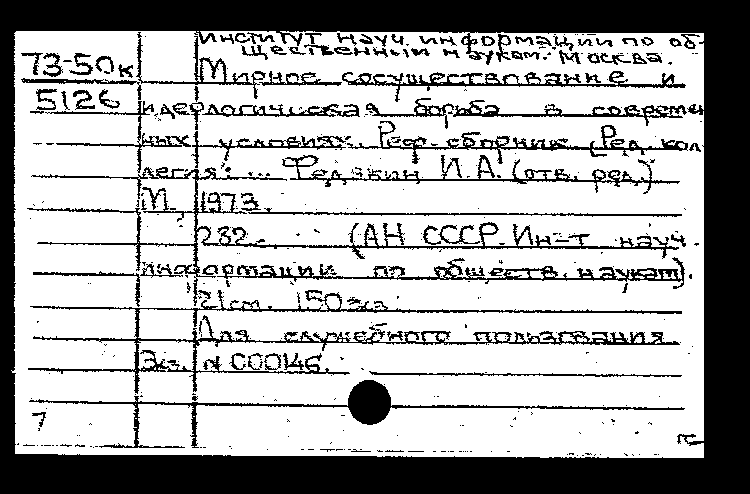 Институт науч. информации по об-
щественным наукам. Москва.
73-50к
5126
Мирное сосуществование и
идеологическая борьба в современ
ных условиях. Реф. сборник (Ред. кол
легия: ... Федякин И.А. (отв. ред.)
М., 1973.
232 с. (АН СССР. Ин-т науч.
информации по обществ. наукам).
21 см. 150 экз.
Для служебного пользования
Экз. N 000146.
7